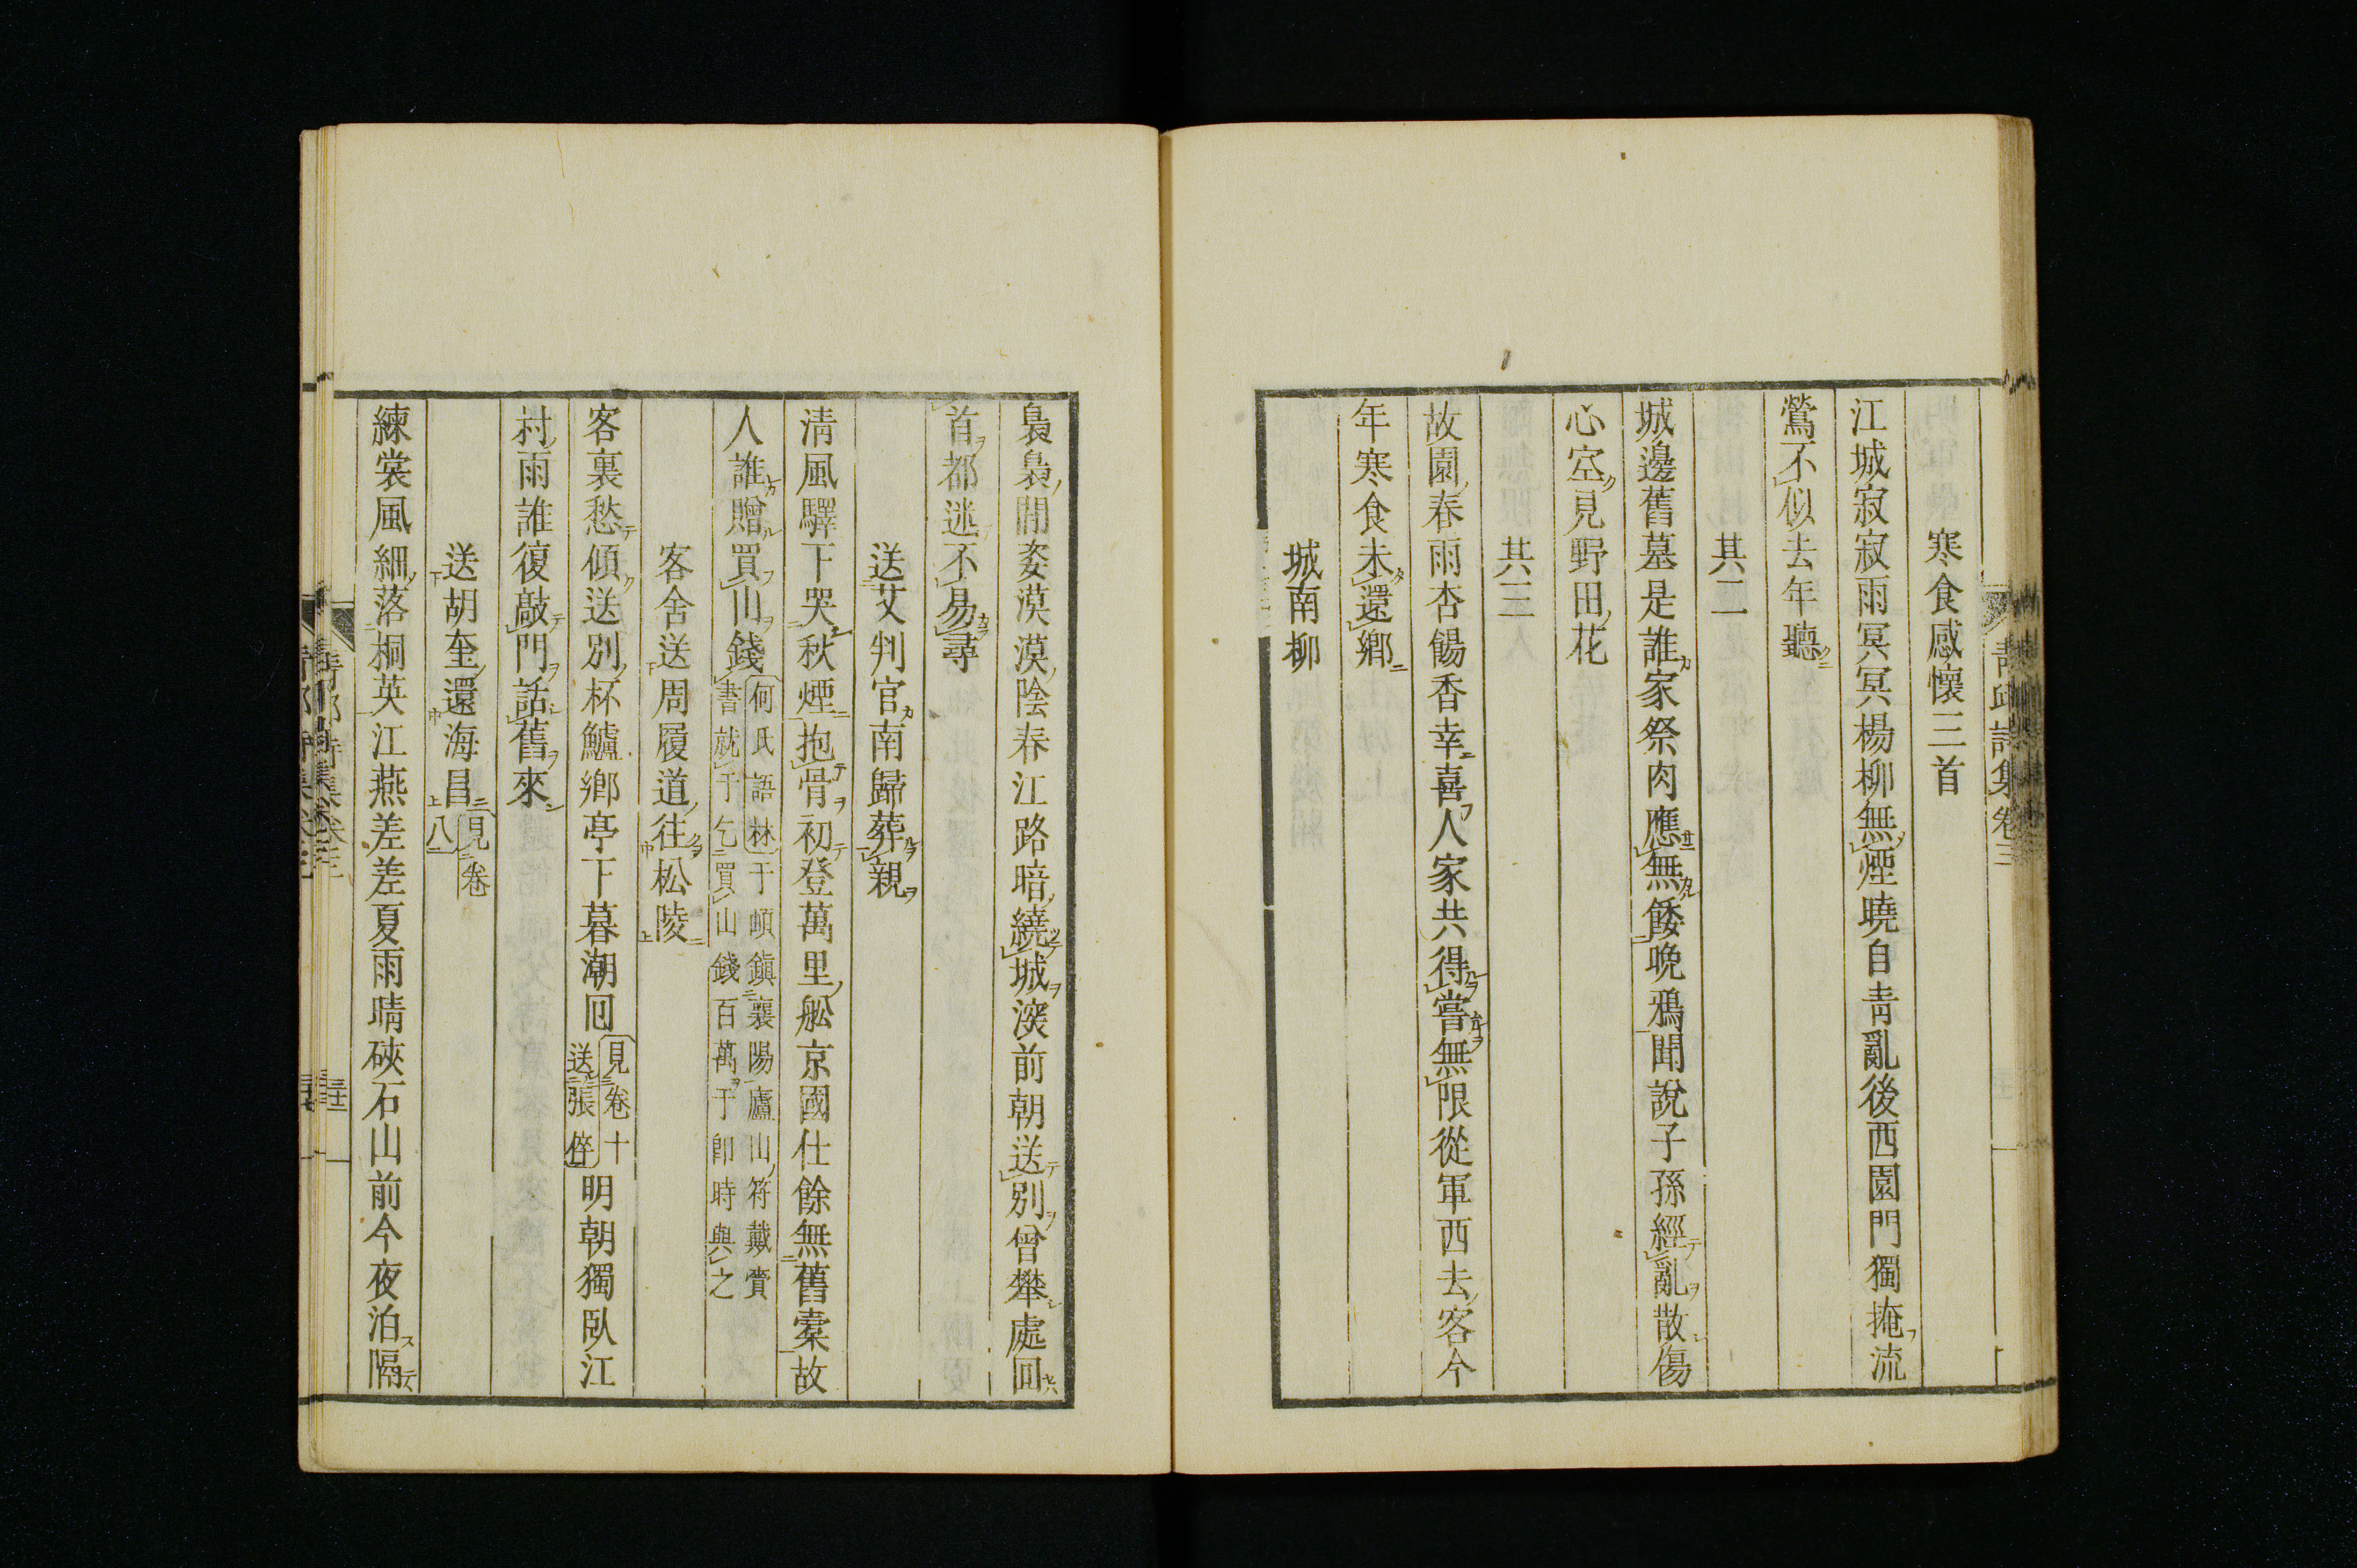 寒食感懷三首
江城寂寂雨冥冥楊柳無煙曉自青亂後西園門獨掩流
鶯不似去年聽
其二
城邊舊墓是誰家祭肉應無餧晚鴉聞說子孫經亂散傷
心空見野田花
其三
故園春雨杏餳香幸喜人家共得嘗無限從軍西去客今
年寒食未還鄉
城南柳
裊裊閒姿漠漠陰春江路暗繞城深前朝送別曾攀處回
首都迷不易尋
送艾判官南歸葬親
清風驛下哭秋煙抱骨初登萬里船京國仕餘無舊槖故
人誰贈買山錢
何氏語林于頔鎮襄陽廬山符戴賫
書就于乞買山錢百萬于卽時與之
客舍送周履道往松陵
客裏愁傾送別杯鱸鄉亭下暮潮囘
見卷十
送張倅
明朝獨臥江
村雨誰復敲門話舊來
送胡奎還海昌
見卷
八
練裳風細落桐英江燕差差夏雨晴硤石山前今夜泊隔